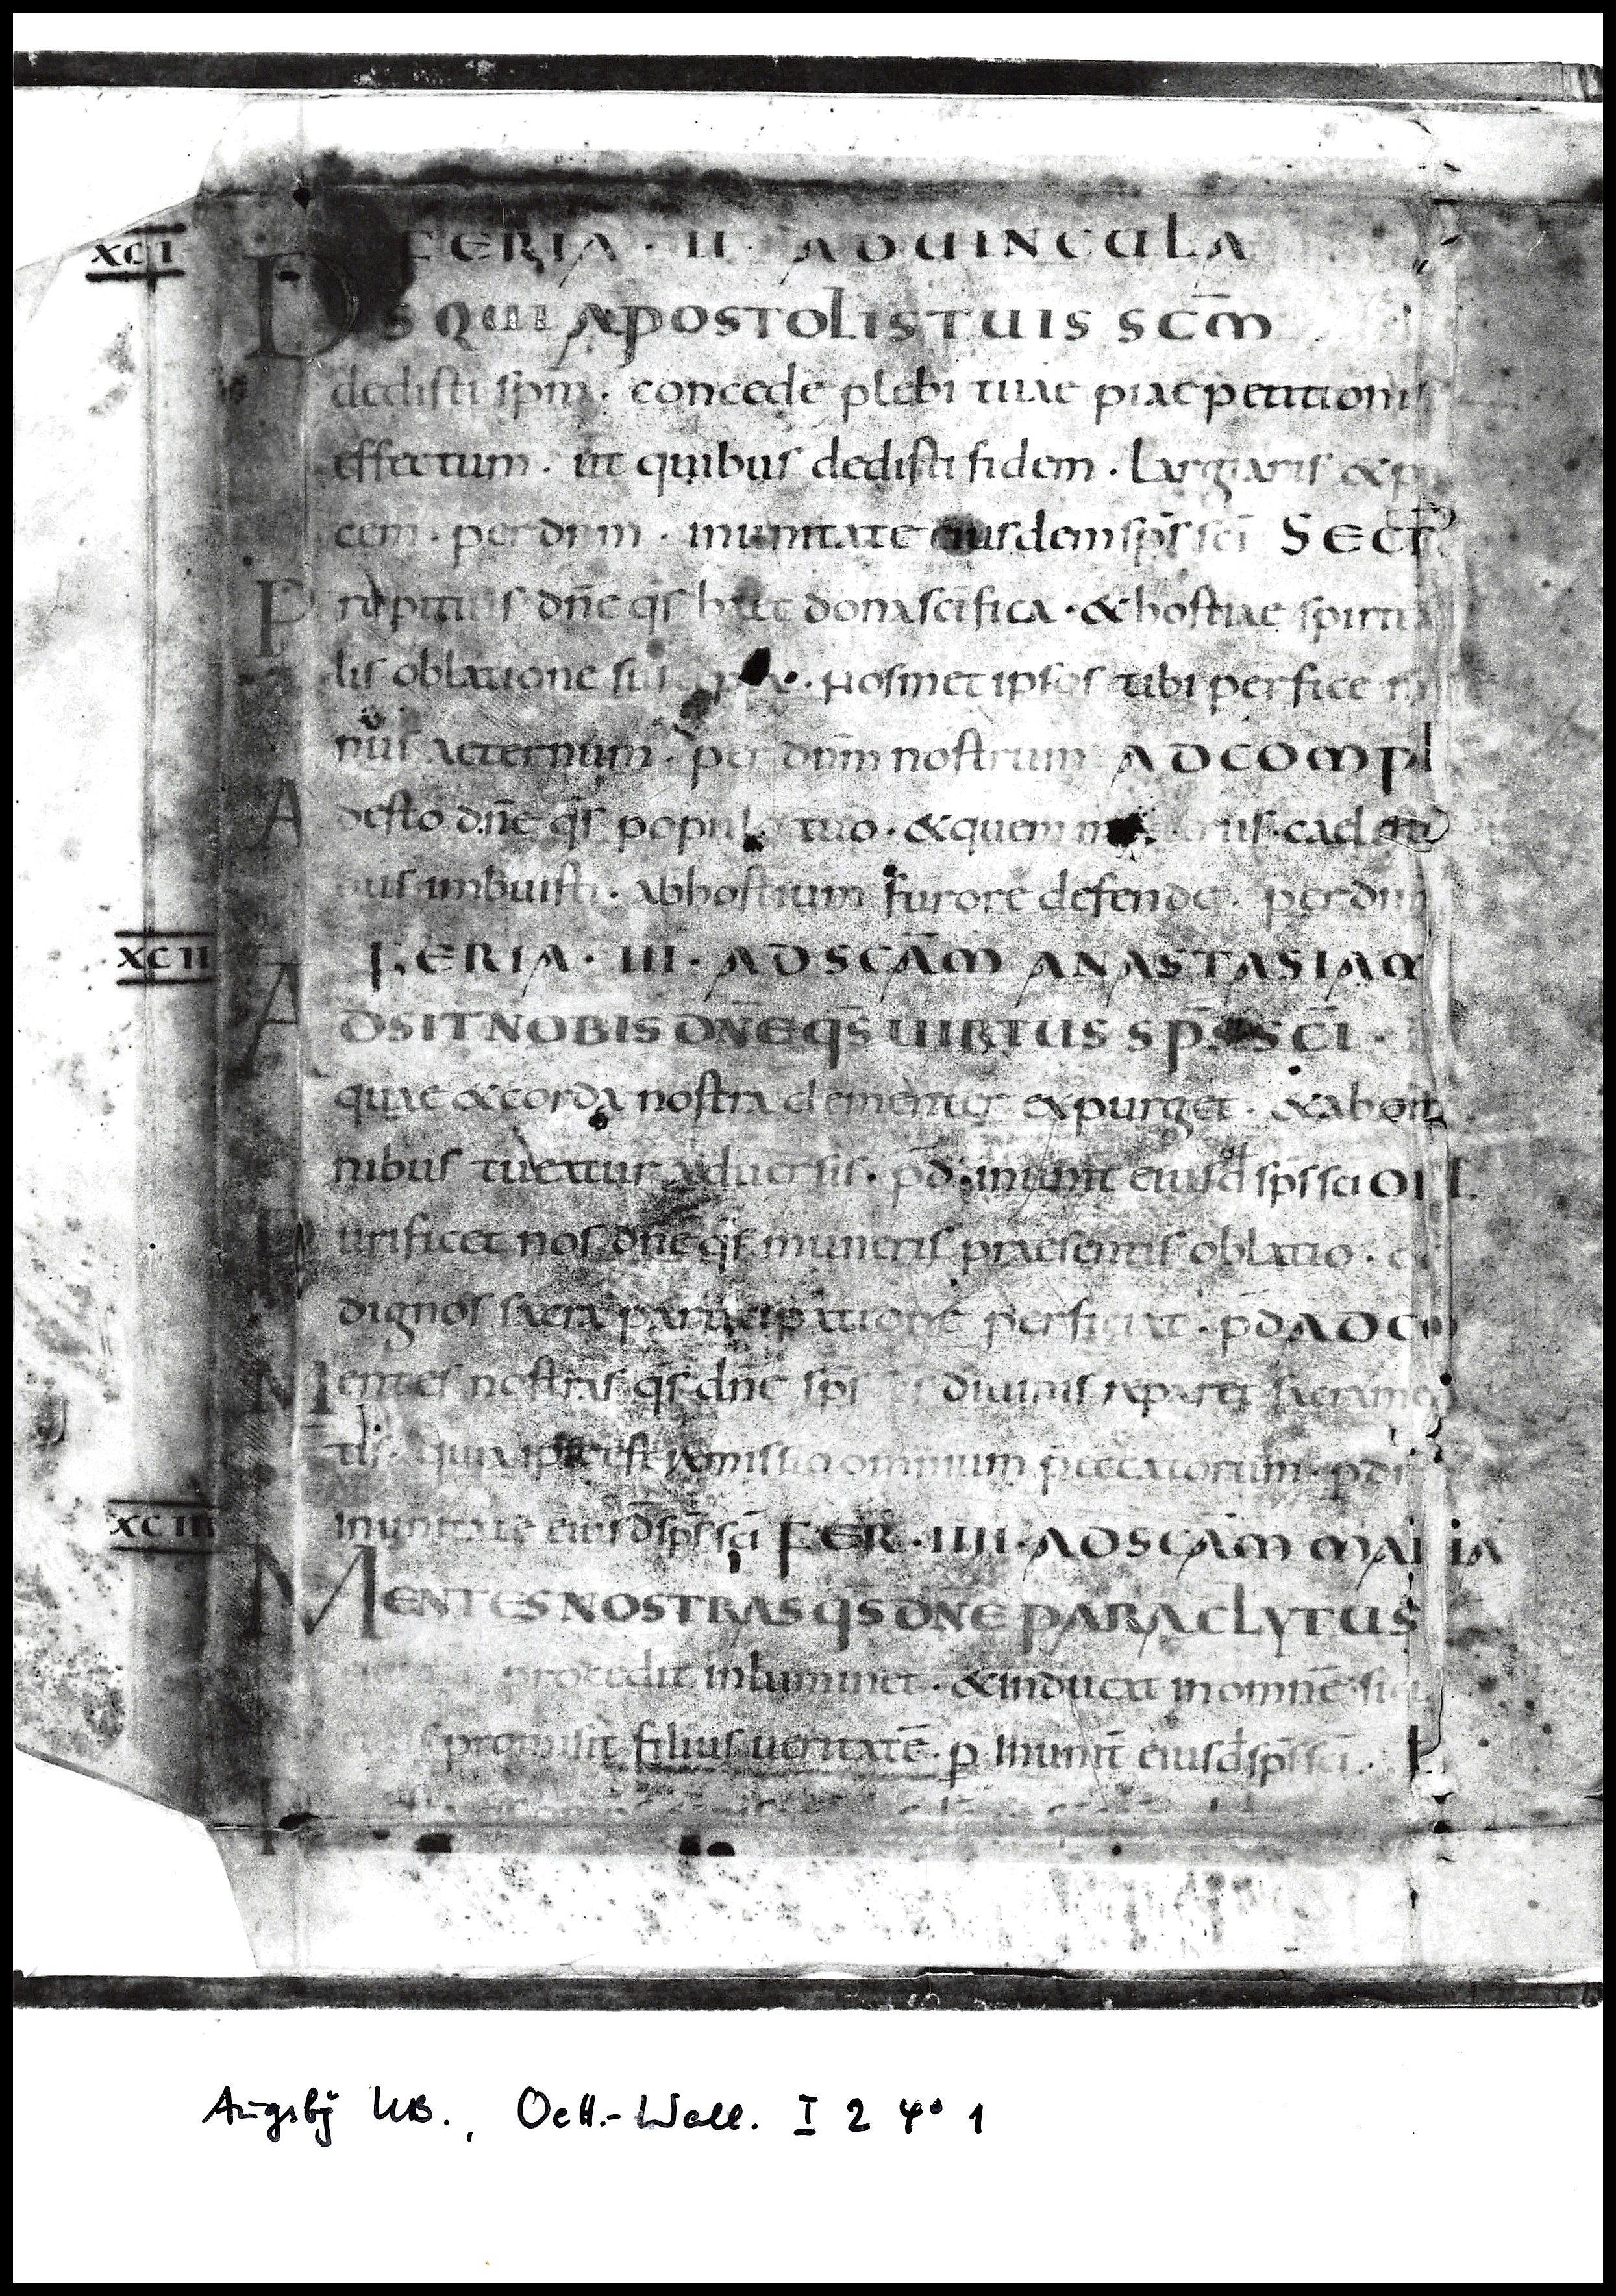 XCI FERIA · II · AD UINCULA
DS QUI APOSTOLIS TUIS SCM̄
dedisti spm̄ · concede plebi tuae piae petitionis
effectum · ut quibus dedisti fidem · largiaris & p
cem · per dnm · in unitate eiusdem sp̄s sc̄i SECR
Propitius dn̄e qs̄ haec dona sc̄ifica · & hostiae spirita
lis oblatione · nosmet ipsos tibi perfice
nus aeternum · per dnm̄ nostrum AD COMPL
Adesto dn̄e qs̄ populo tuo · & quem cael
bus imbuisti · ab hostium furore defende · per dnm
XCII FERIA · III · AD SCĀM ANASTASIAM
ADSIT NOBIS DN̄E QS̄ UIRTUS SP̄S SC̄I ·
quae & corda nostra clementer expurget · & ab om
nibus tueatur aduersis · p̄ d̄ · in unit̄ eiusd̄ sp̄s sc̄i
Purificet nos dn̄e qs̄ muneris praesentis oblatio · &
dignos sacra participatione perficiat · p̄ d̄ AD CO
Mentes nostras qs̄ dn̄e sp̄s diuinis reparet sacrame
tis · quia ipse est remissio omnium peccatorum · p̄ d
XCIII in unitate eiusd̄ sp̄s sc̄i FER · IIII · AD SCĀM MARIA
MENTES NOSTRAS QS̄ DN̄E PARACLYTUS
procedit inluminet · & inducat in omnē · sicu
promisit filius ueritatē · p̄ in unit̄ eiusd̄ sp̄s sc̄i ·
P
Augsbg UB., Oett.-Wall. I 2 4° 1